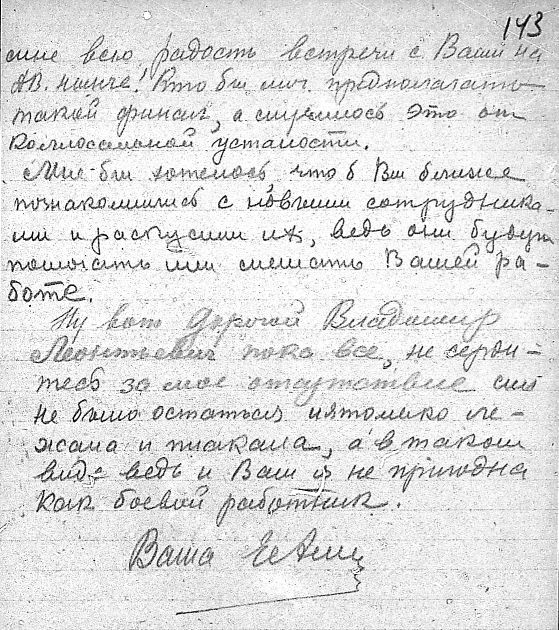 143
мне всю радость встречи с Вами на
АВ. нынче! Кто бы мог предполагать
такой финал, а случилось это от
колоссальной усталости.
Мне бы хотелось чтоб Вы ближе
познакомились с новыми сотрудника-
ми и раскусили их, ведь они будут
помогать или мешать Вашей ра-
боте.
Ну вот Дорогой Владимир
Леонтьевич пока все, не серди-
тесь за мое отсутствие сил
не было остаться я только ле-
жала и плакала, а в таком
виде ведь и Вам я не пригодна
как боевой работник.
Ваша